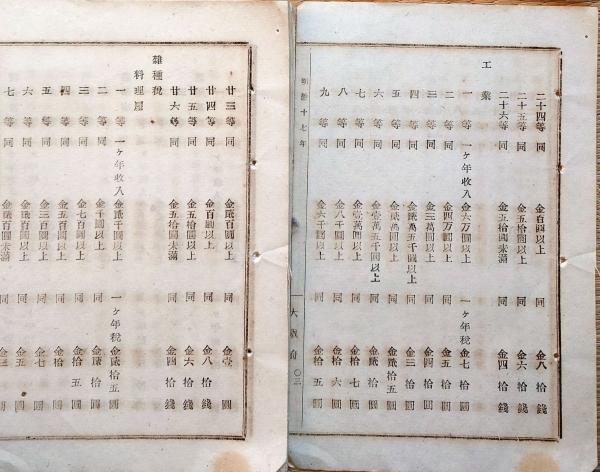 二十四等 同 金百圓以上 同 金八拾錢
二十五等 同 金五拾圓以上 同 金六拾錢
二十六等 同 金五拾圓未滿 同 金四拾錢
工業
一等 一ヶ年收入金六万圓以上 一ヶ年税金七拾圓
二等 同 金四万圓以上 同 金五拾圓
三等 同 金三萬圓以上 同 金四拾圓
四等 同 金貳萬五千圓以上 同 金三拾圓
五等 同 金貳萬圓以上 同 金貳拾五圓
六等 同 金壹萬五千圓以上 同 金貳拾圓
七等 同 金壹萬圓以上 同 金拾七圓
八等 同 金八千圓以上 同 金拾六圓
九等 同 金六千圓以上 同 金拾五圓
明治十七年 大阪府 〇三
廿三等 同 金貳百圓以上 同 金壹圓
廿四等 同 金百圓以上 同 金八拾錢
廿五等 同 金五拾圓以上 同 金六拾錢
廿六等 同 金五拾圓未滿 同 金四拾錢
雜種税
料理屋
一等 一ヶ年收入金貳千圓以上 一ヶ年税金貳拾五圓
二等 同 金千圓以上 同 金貳拾圓
三等 同 金七百圓以上 同 金拾五圓
四等 同 金五百圓以上 同 金拾圓
五等 同 金三百圓以上 同 金七圓
六等 同 金貳百圓以上 同 金五圓
七等 同 金貳百圓未滿 同 金三圓